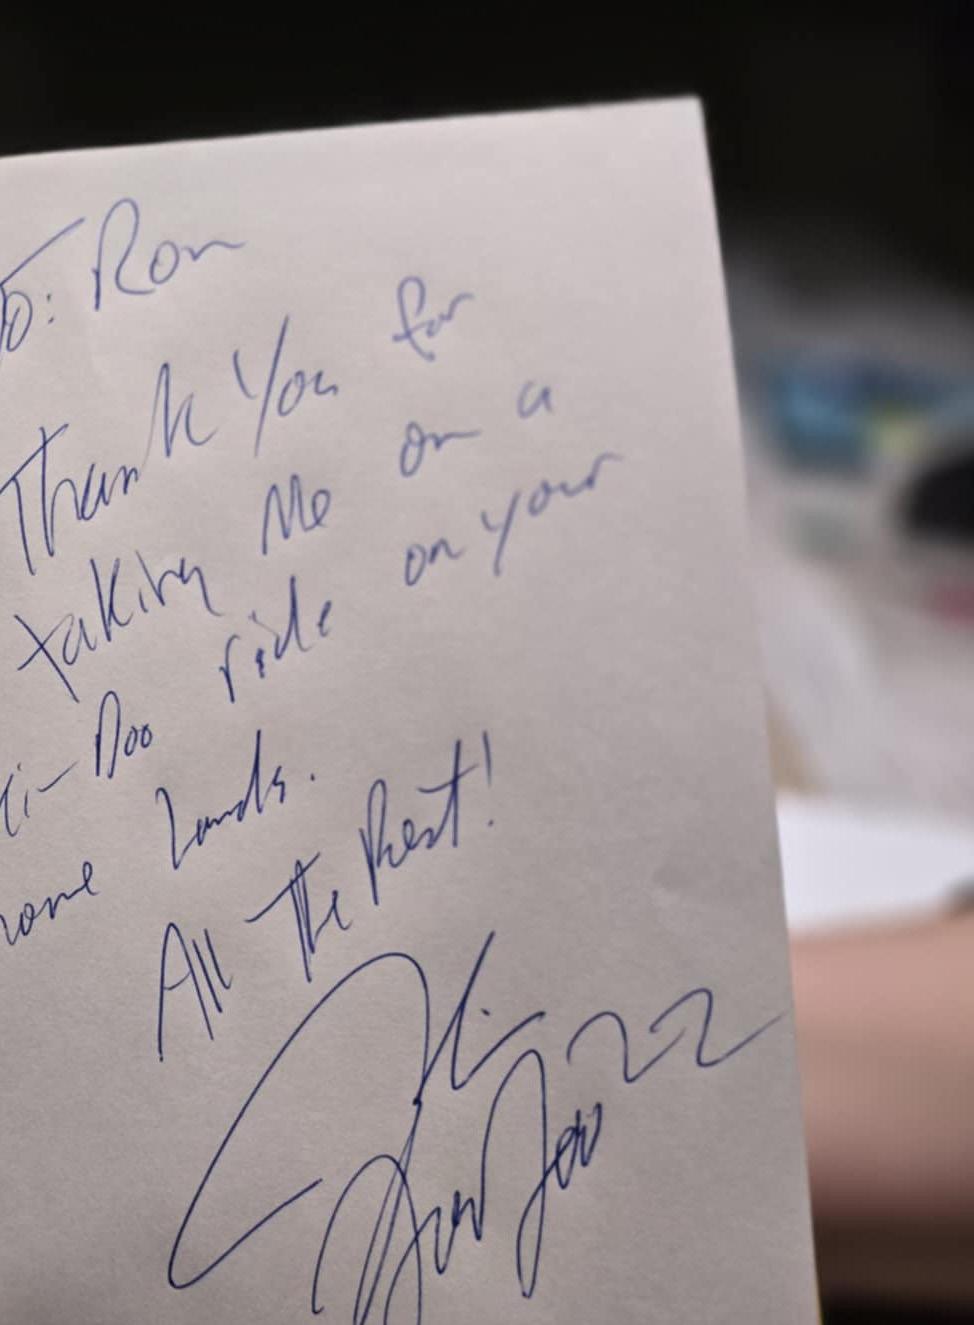 To: Ron
Thank You for
taking Me on a
Ki-Doo ride on your
home Lands.
All The Best!